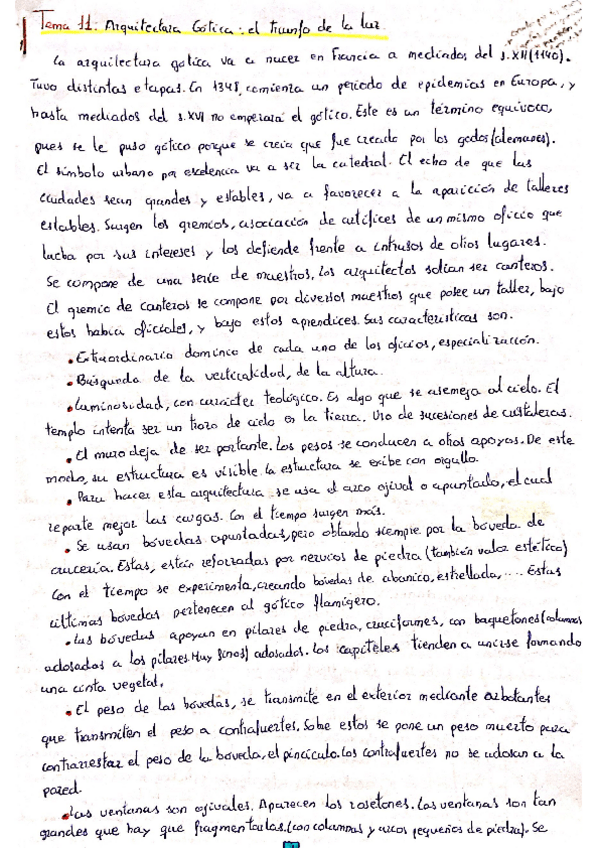 Tema 11: Arquitectura Gótica: el triunfo de la luz.
La arquitectura gotica va a nacer en Francia a mediados del s.XII (1140).
Tuvo distintas etapas. En 1348, comienza un periodo de epidemias en Europa, y
hasta mediados del s.XVI no empeirará el gótico. Este es un término equivoco,
pues se le puso gótico porque se creia que fue creado por los godos (alemanes).
El símbolo urbano por excelencia va a ser la catedral. El echo de que las
ciudades sean grandes y estables, va a favorecer a la aparición de talleres
estables. Surgen los gremios, asociación de artífices de un mismo oficio que
lucha por sus intereses y los defiende frente a intrusos de otros lugares.
Se compone de una serie de maestros. Los arquitectos solían ser canteros.
El gremio de canteros se compone por diversos maestros que posee un taller, bajo
estos había oficiales, y bajo estos aprendices. Sus características son.
• Extraordinario dominio de cada uno de los oficios, especialización.
• Búsqueda de la verticalidad, de la altura.
• Luminosidad, con carácter teológico. Es algo que se asemeja al cielo. El
templo intenta ser un trozo de cielo en la tierra. Uso de sucesiones de cristaleras.
• El muro deja de ser portante. Los pesos se conducen a otros apoyos. De este
modo, su estructura es visible. La estructura se exibe con orgullo.
• Para hacer esta arquitectura se usa el arco ojival o apuntado, el cual
reparte mejor las cargas. Con el tiempo surgen más.
• Se usan bóvedas apuntadas, pero obtando siempre por la bóveda de
crucería. Estas, están reforzadas por nervios de piedra (también valor estético)
Con el tiempo se experimenta, creando bóvedas de abanico, estrellada, .... Estas
últimas bóvedas pertenecen al gótico flamígero.
• Las bóvedas apoyan en pilares de piedra, cruciformes, con baquetones (columnas
adosadas a los pilares. Muy finos) adosados. Los capiteles tienden a unirse formando
una cinta vegetal.
• El peso de las bóvedas, se transmite en el exterior mediante arbotantes
que transmiten el peso a contrafuertes. Sobe estos se pone un peso muerto para
contrarrestar el peso de la boveda, el pináculo. Los contrafuertes no se adosan a la
pared.
• Las ventanas son ojivales. Aparecen los rosetones. Las ventanas son tan
grandes que hay que fragmentarlas. (con columnas y arcos pequeños de piedra). Se